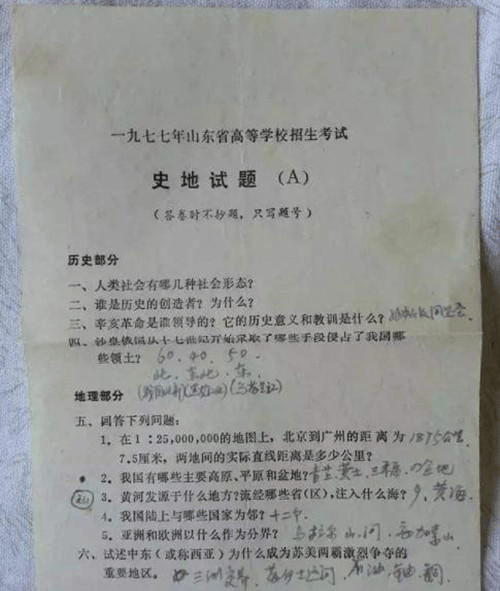 一九七七年山东省高等学校招生考试
史地试题（A）
（答卷时不抄题，只写题号）
历史部分
一、人类社会有哪几种社会形态？
二、谁是历史的创造者？为什么？
三、辛亥革命是谁领导的？它的历史意义和教训是什么？
四、沙皇俄国从十七世纪开始采取了哪些手段侵占了我国哪
些领土？ 60、40、50
北、东北、东
地理部分
五、回答下列问题：
1、在1：25,000,000的地图上，北京到广州的距离为 1875公里
7.5厘米，两地间的实际直线距离是多少公里？
2、我国有哪些主要高原、平原和盆地？
3、黄河发源于什么地方？流经哪些省(区)，注入什么海？ 9、黄海
4、我国陆上与哪些国家为邻？ 十二个
5、亚洲和欧洲以什么作为分界？ 乌拉尔山、河、高加索山
六、试述中东（或称西亚）为什么成为苏美两霸激烈争夺的
重要地区。 三洲交界 苏伊士运河 石油